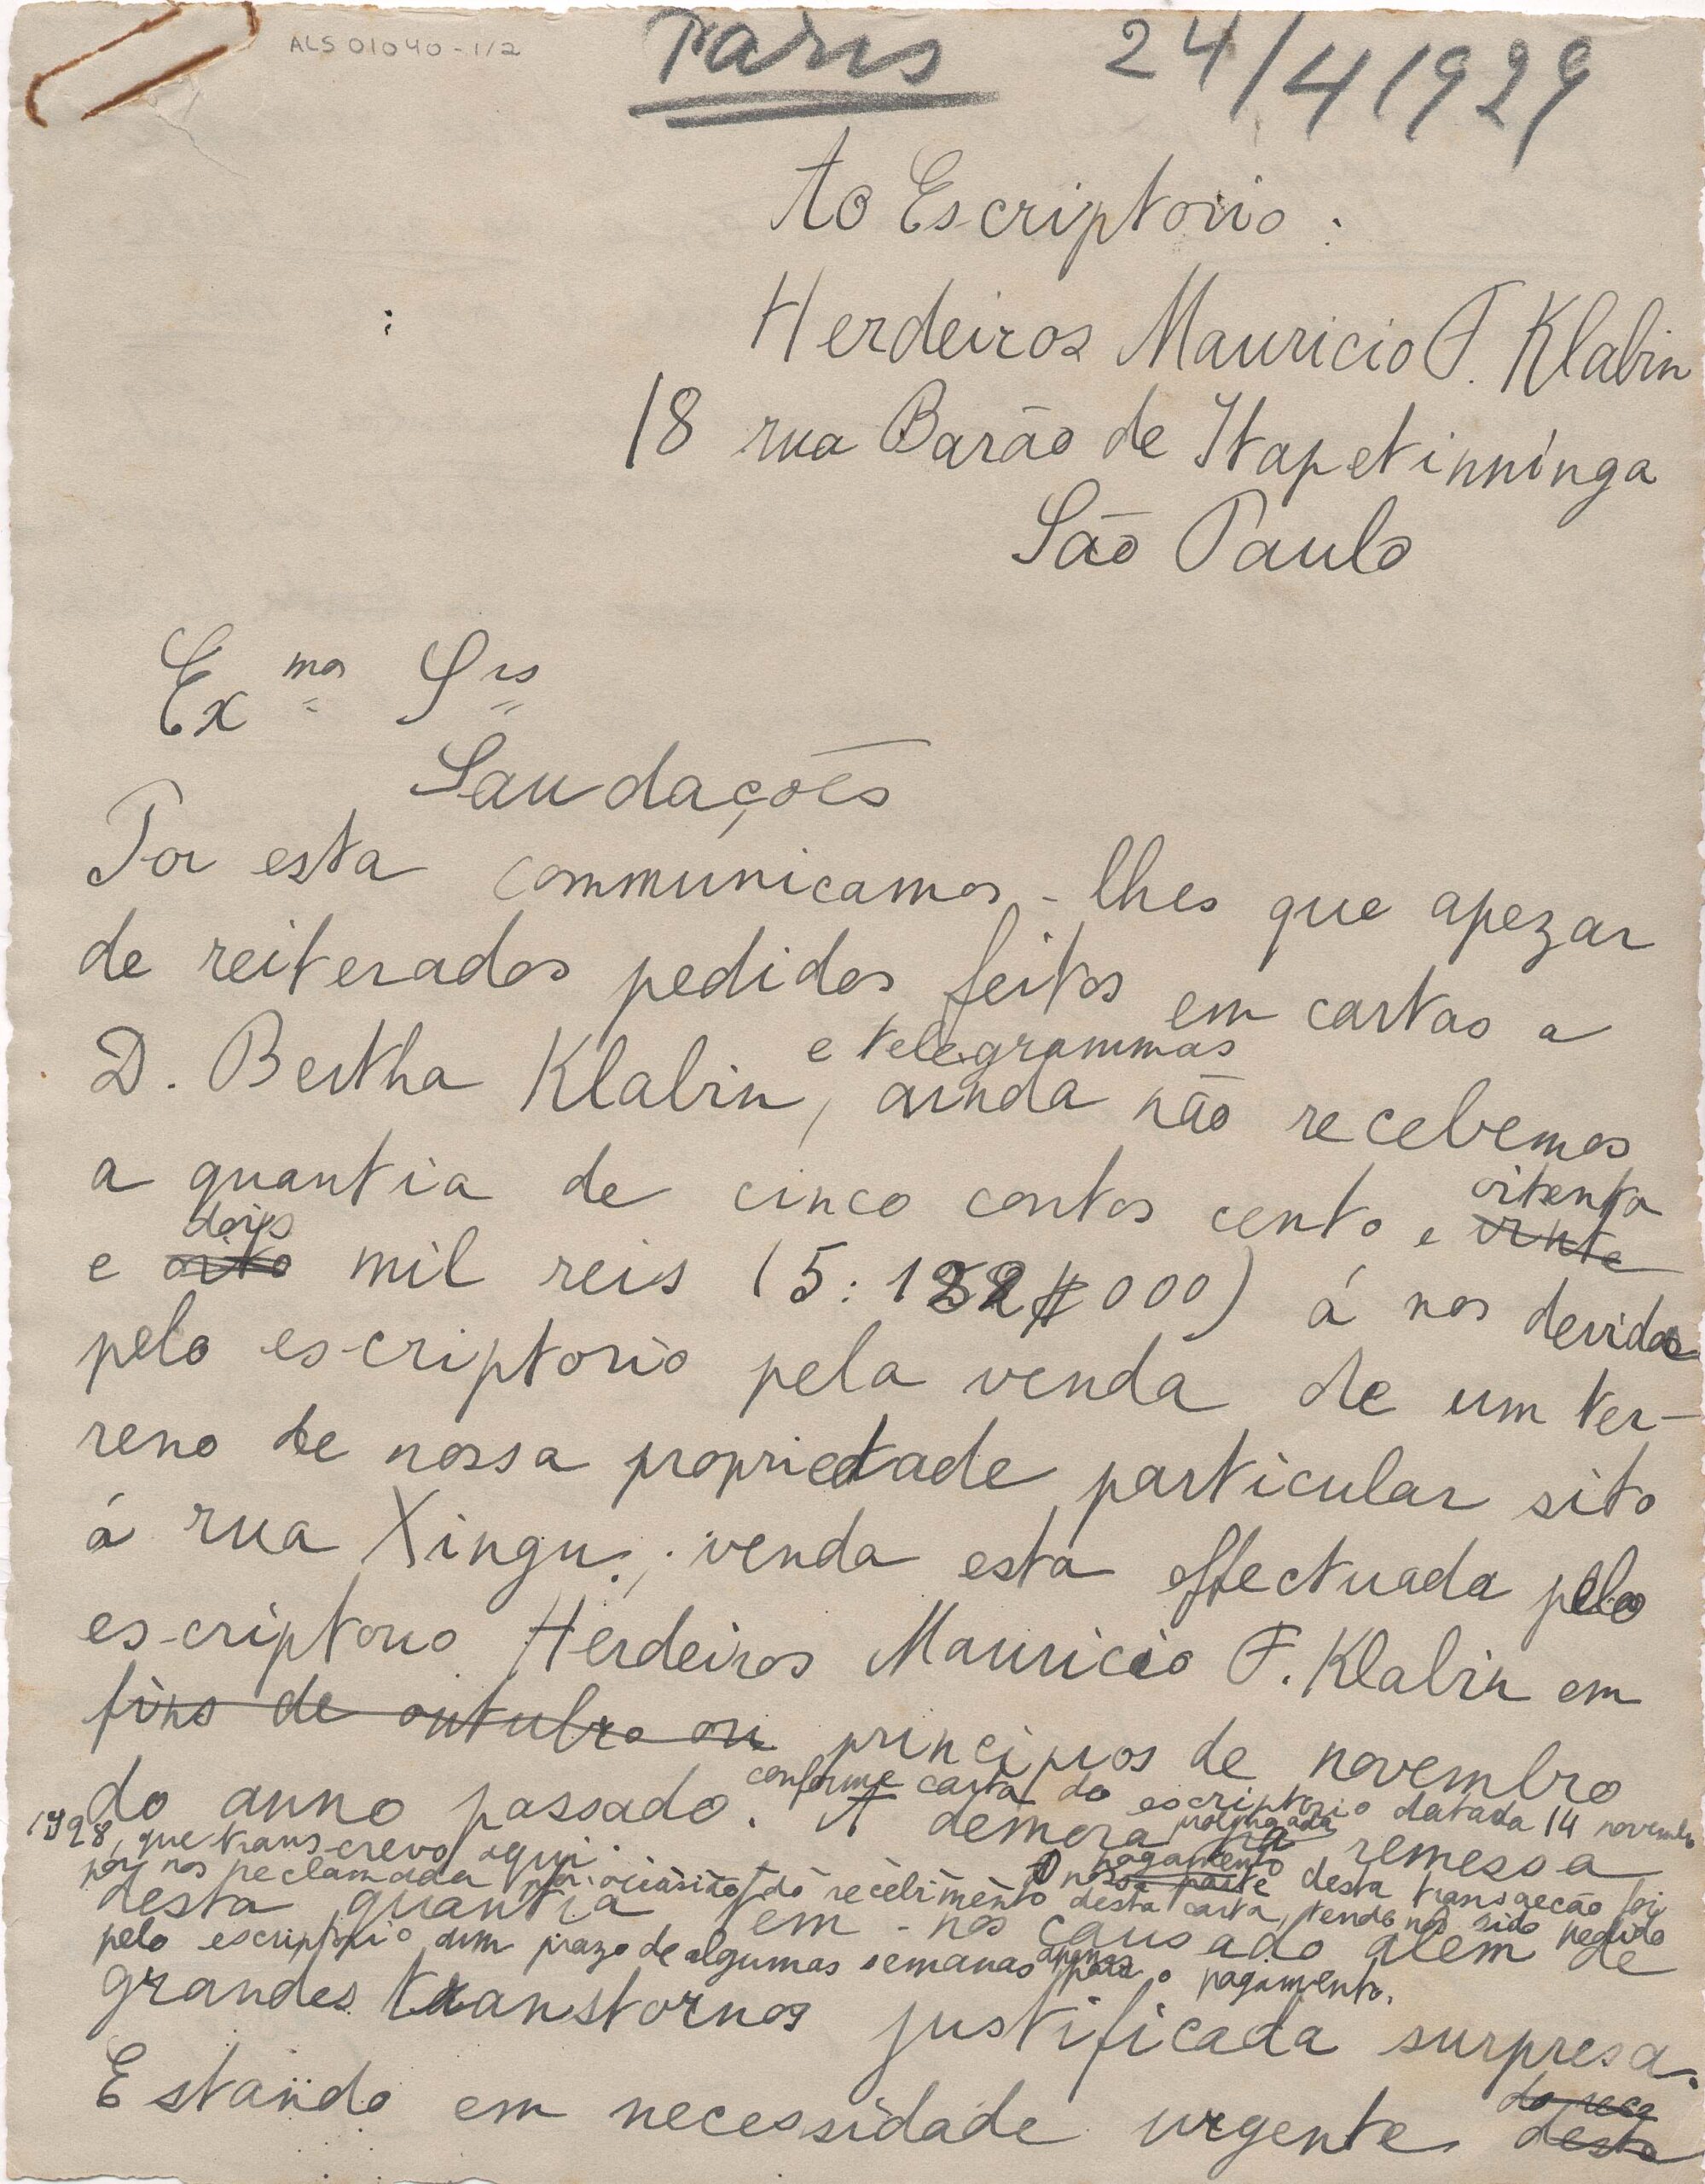 ALS 01040-1/2
Paris 24/4/1929
Ao Escriptorio:
Herdeiros Mauricio F. Klabin
18 rua Barão de Itapetinninga
São Paulo
Exmos Srs
Saudações
Por esta communicamos-lhes que apezar
de reiterados pedidos feitos em cartas a
e telegrammas
D. Bertha Klabin, ainda não recebemos
a quantia de cinco contos cento e vinte
oitenta
dois
e oito mil reis (5:182$000) á nos devidos
pelo escriptorio pela venda de um ter-
reno de nossa propriedade particular sito
á rua Xingu; venda esta effectuada pelo
escriptorio Herdeiros Mauricio F. Klabin em
fins de outubro ou principios de novembro
do anno passado. A demora na remessa
conforme carta do escriptorio datada 14 novembro
prolongada
1928, que transcrevo aqui.
O nossa parte desta transacção foi
pagamento
por nos reclamada por occasião do recebimento desta carta, tendo nos sido pedido
desta quantia tem-nos causado alem de
pelo escriptorio um prazo de algumas semanas apenas para o pagamento.
grandes transtornos justificada surpresa.
Estando em necessidade urgente desta
do rece